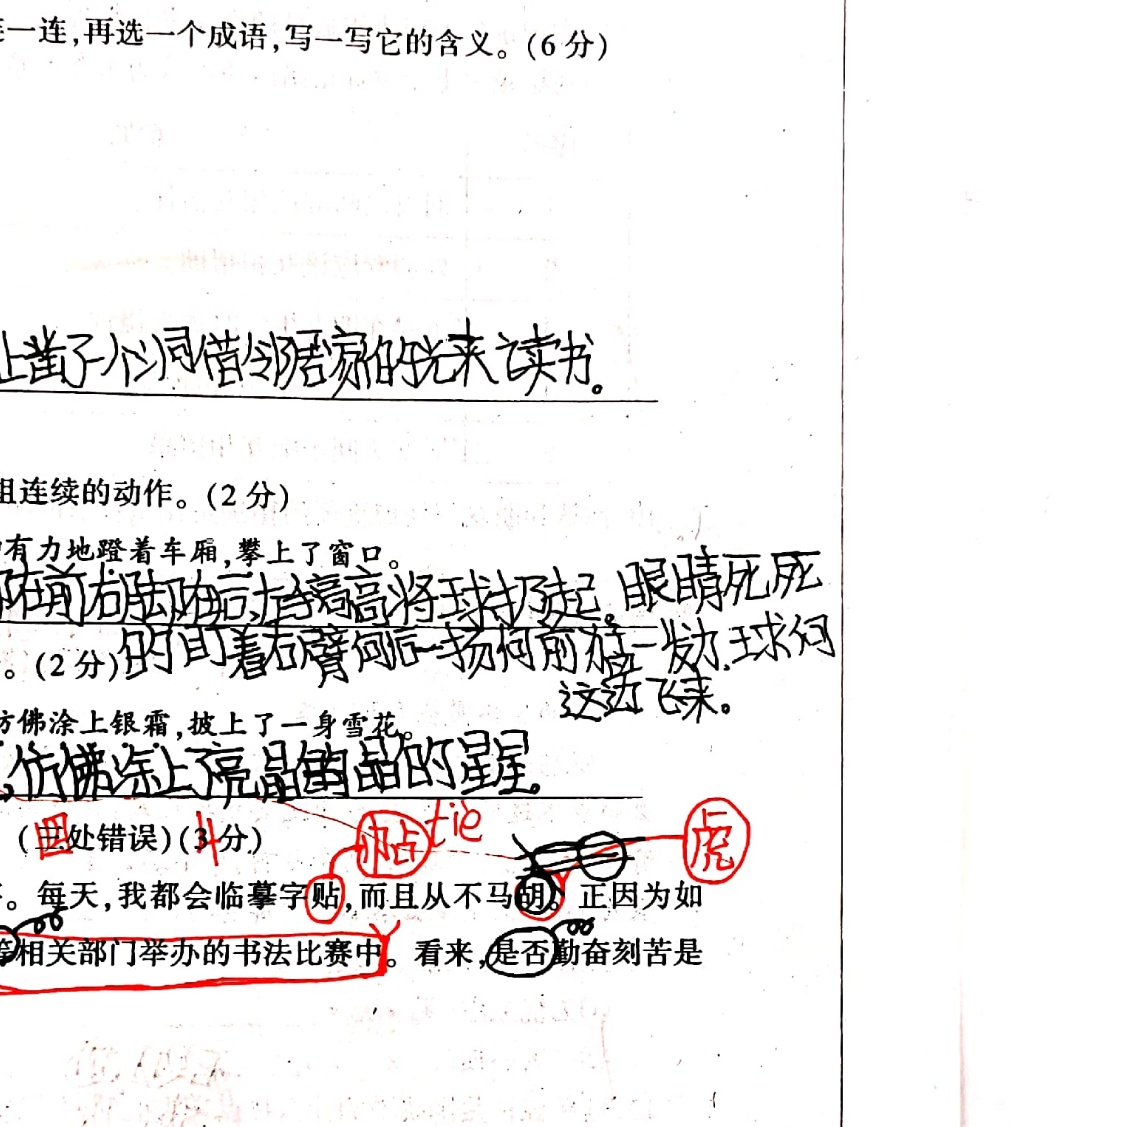 一连,再选一个成语,写一写它的含义。(6分)
上凿了个小洞借邻居家的光来读书。
组连续的动作。(2分)
有力地蹬着车厢,攀上了窗口。
在前右脚在后,左手高高将球扔起。眼睛死死
。(2分)
的盯着右臂向后一扬向前猛一发力.球向
这边飞来。
仿佛涂上银霜,披上了一身雪花。
,仿佛涂上了亮晶晶的星星。
(三处错误)(3分)
四 4 帖 tiè 虎
。每天,我都会临摹字贴,而且从不马胡。正因为如
等相关部门举办的书法比赛中。看来,是否勤奋刻苦是